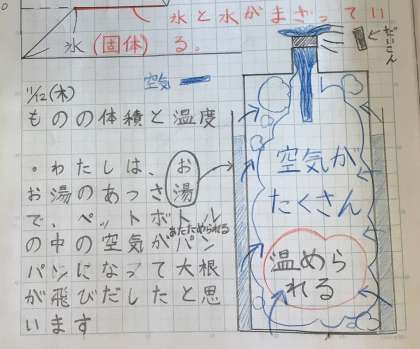 0
氷と水がまざってい
氷(固体)る。
空気
だいこん
11/12(木)
ものの体積と温度
。わたしは、お
お湯のあつさ湯
で、ペットボトル
あたためられる
の中の空気がパン
パンになって大根
が飛びだしたと思
います
空気が
たくさん
温めら
れる